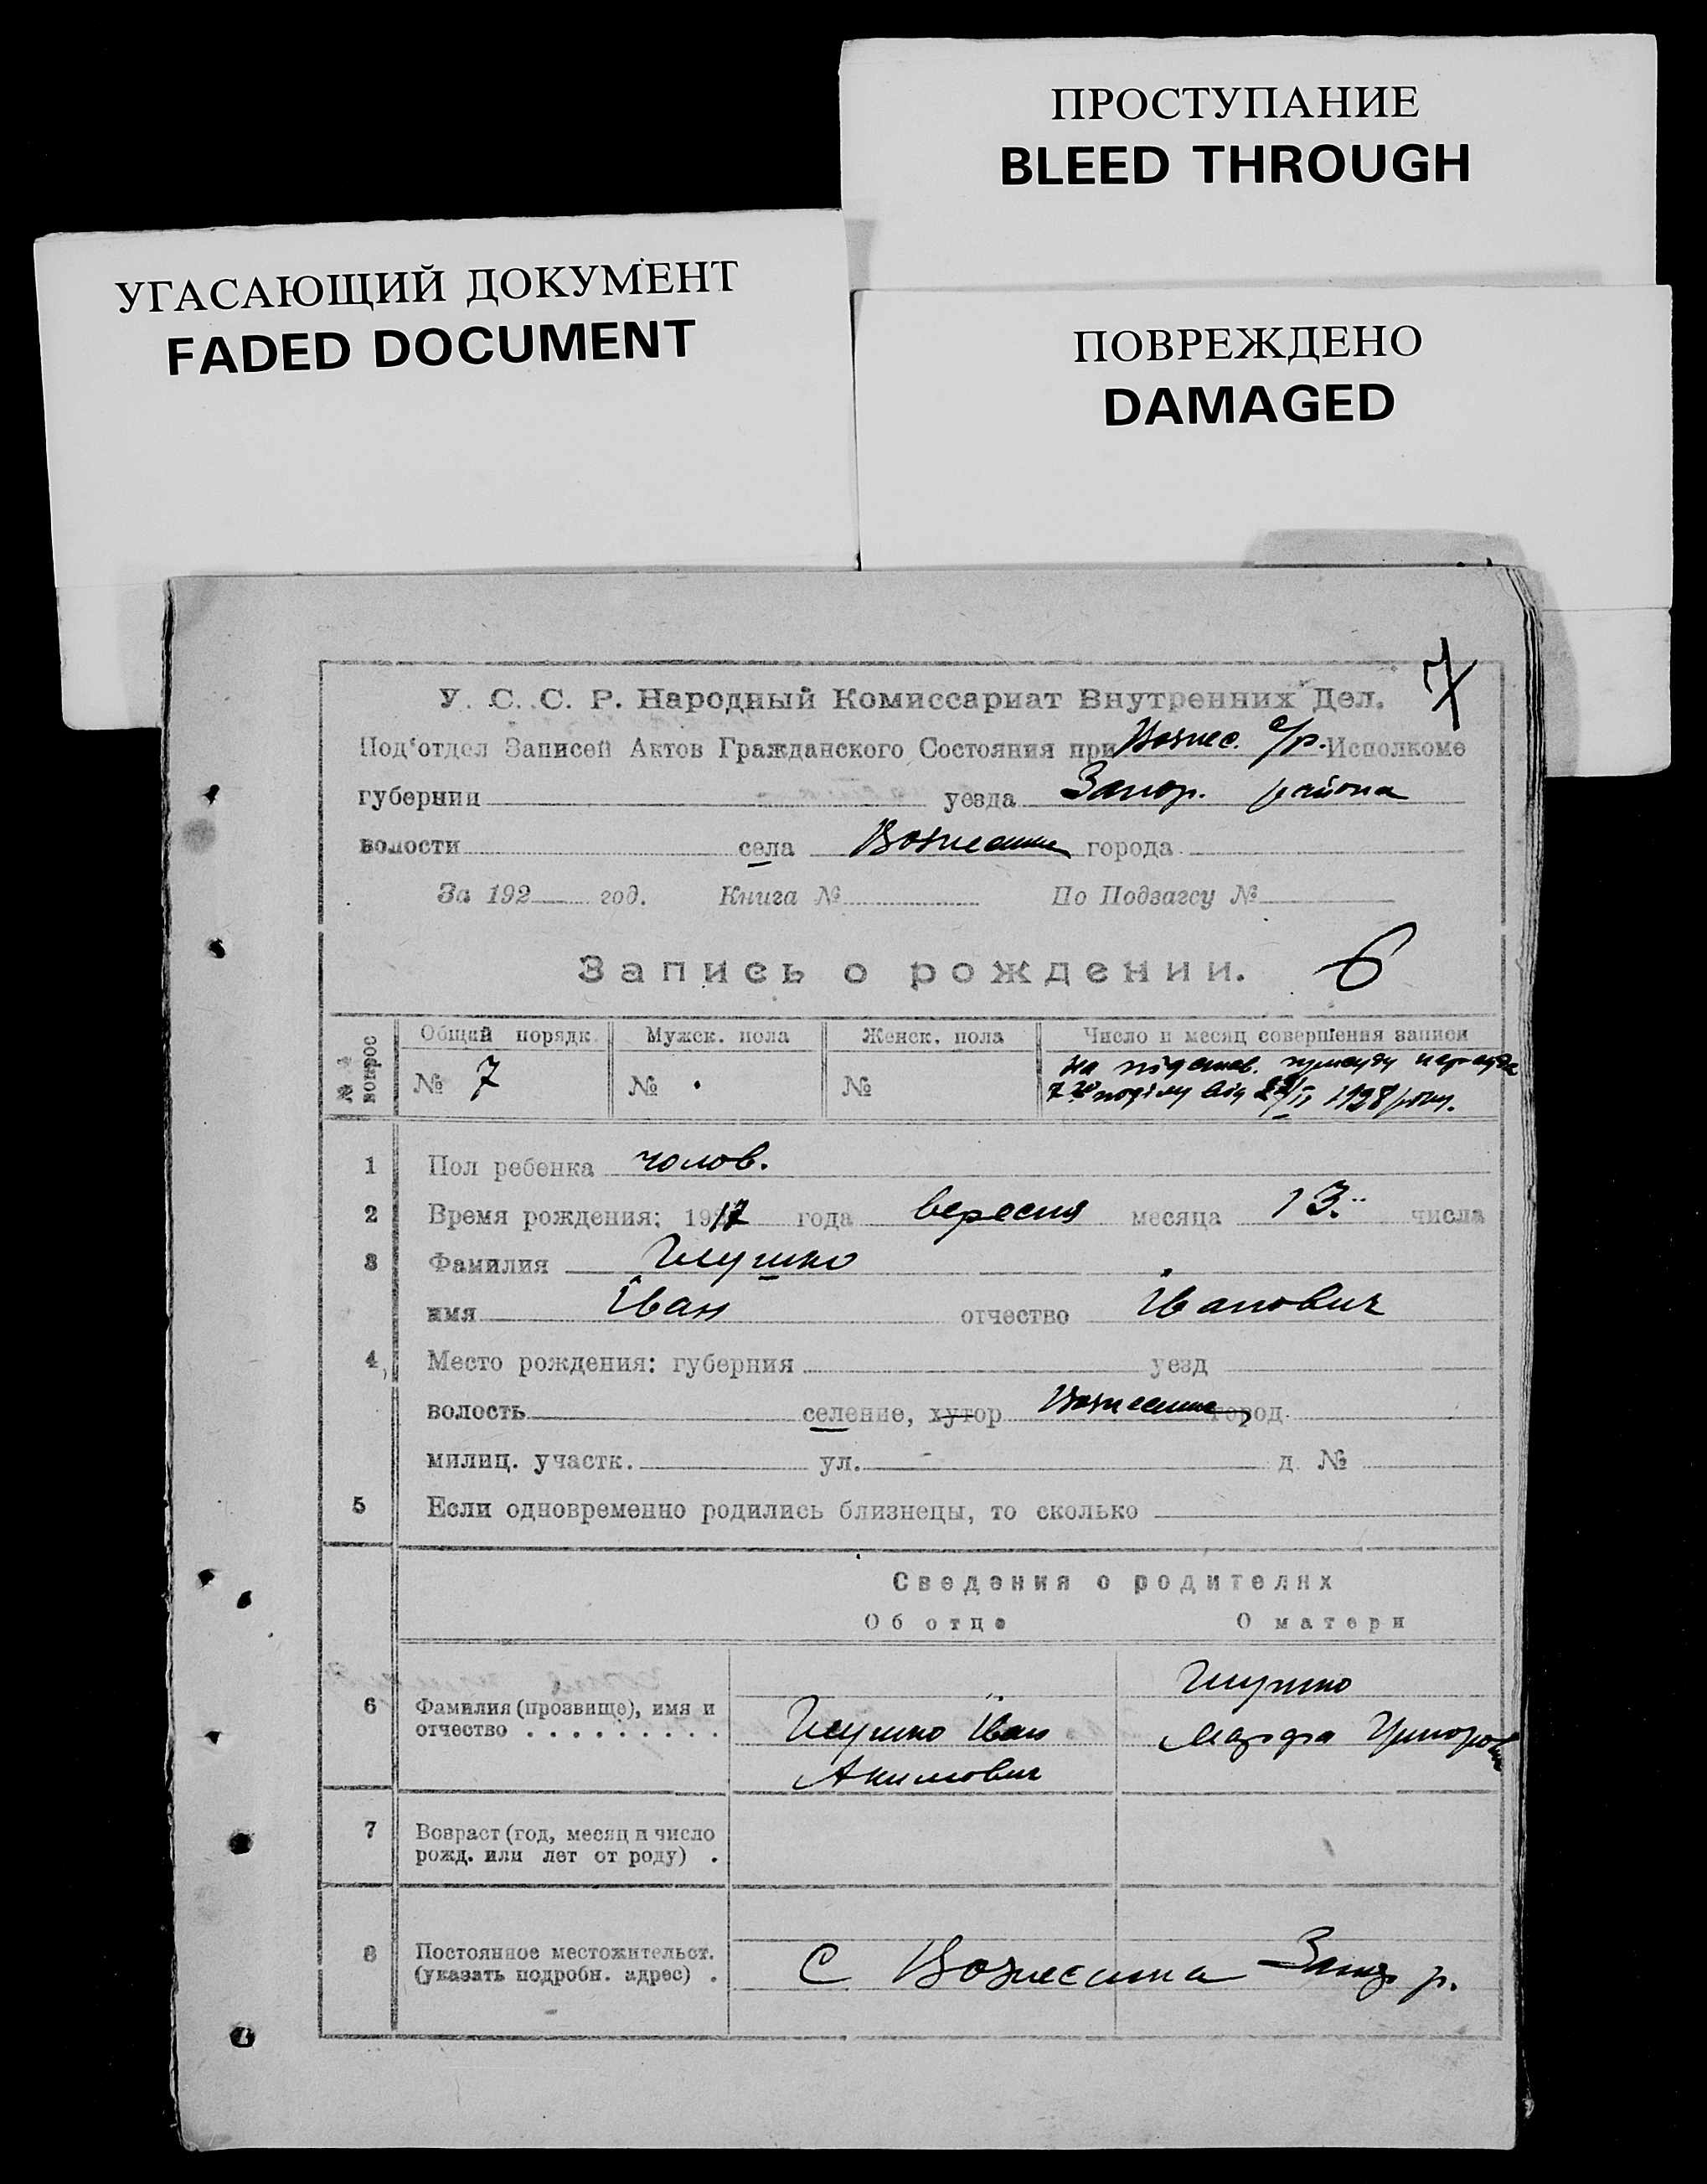 ПРОСТУПАНИЕ
BLEED THROUGH
УГАСАЮЩИЙ ДОКУМЕНТ
FADED DOCUMENT
ПОВРЕЖДЕНО
DAMAGED
7
У. С. С. Р. Народный Комиссариат Внутренних Дел.
Под'отдел Записей Актов Гражданского Состояния при Вознес. с/р. Исполкоме
губернии уезда Запор. района
волости села города
За 192 год. Книга № По Подзагсу №
Запись о рождении. 6
№№ вопрос Общий порядк. Мужск. пола Женск. пола Число и месяц совершения записи
№ 7 № № на підстав.
від 1928 року.
1 Пол ребенка чолов.
2 Время рождения: 1917 года вересня месяца 13 числа
3 Фамилия
имя Іван отчество Іванович
4 Место рождения: губерния уезд
волость селение, хутор город
милиц. участк. ул. д. №
5 Если одновременно родились близнецы, то сколько
Сведения о родителях
Об отце О матери
6 Фамилия (прозвище), имя и
отчество . . . . . . . . . Іван Марфа
Акимович
7 Возраст (год, месяц и число
рожд. или лет от роду) .
8 Постоянное местожительст.
(указать подробн. адрес) . С Вознесенка Запор р.